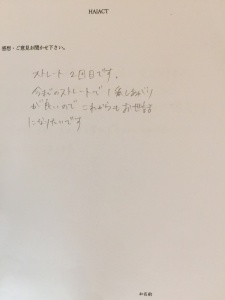 HAIACT
感想・ご意見お聞かせ下さい。
ストレート2回目です。
今までのストレートで1番しあがり
が良いので これからもお世話
になりたいです
お名前